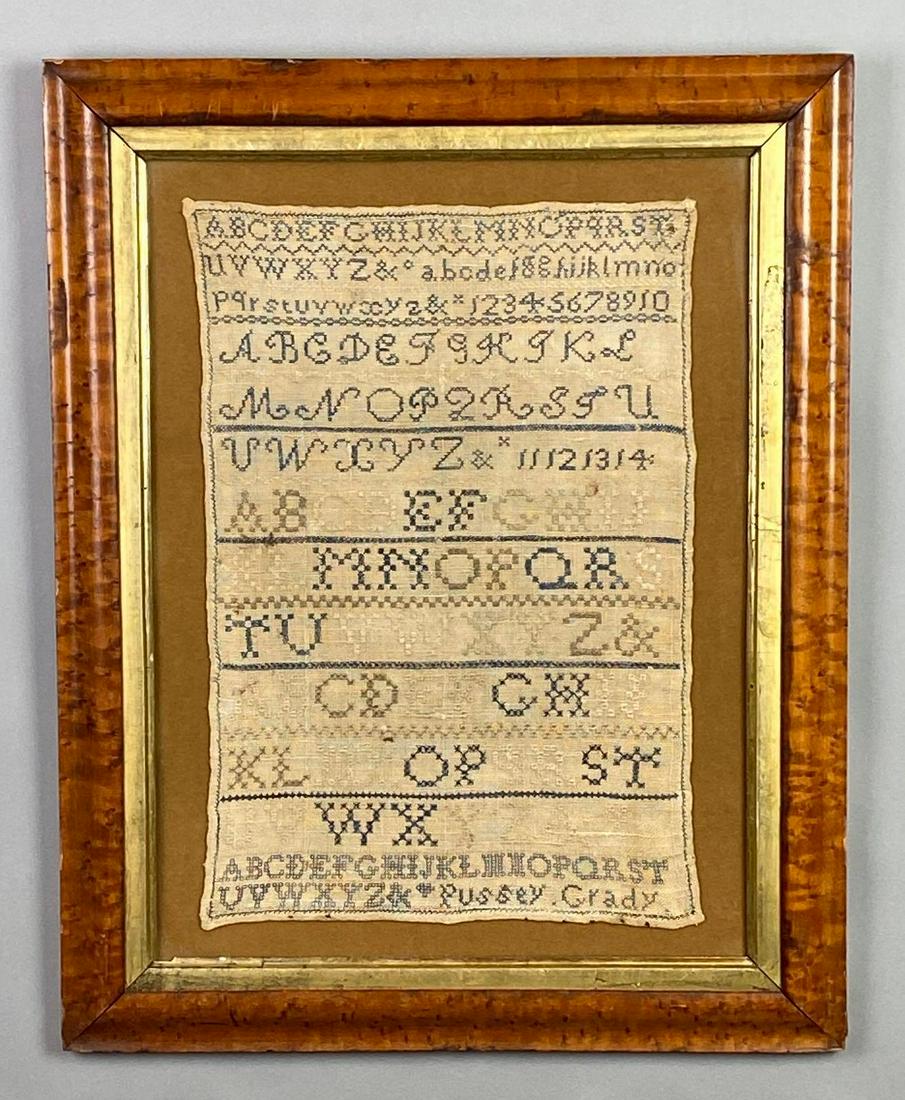 ABCDEFGHIJKLMNOPQRST
UVWXYZ& abcdefgghijklmno
pqrstuvwxyz& 12345678910
ABCDEFGHIJKL
MNOPQRSTU
VWXYZ& 11121314
AB EFGHIJ
MNOPQRS
TUVWXYZ&
CD GH
KL OP ST
WX
ABCDEFGHIJKLMNOPQRST
UVWXYZ& Pussey. Grady